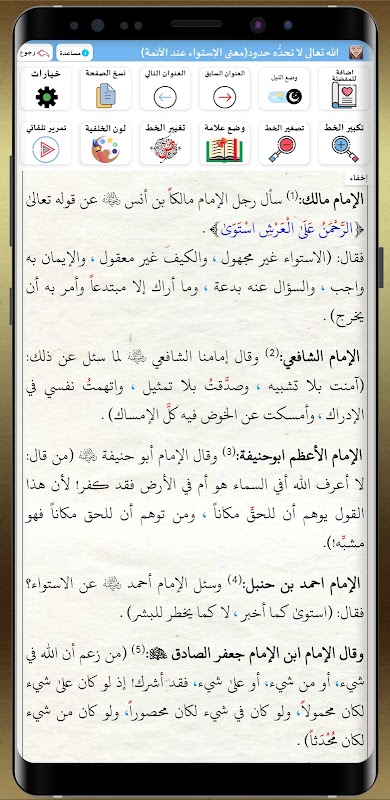 رجوع
مساعدة
الله تعالى لا تحدُّه حدود(معنى الإستواء عند الأئمة)
اضافة للمفضلة
وضع الليل
العنوان السابق
العنوان التالي
نسخ الصفحة
خيارات
تكبير الخط
تصغير الخط
وضع علامة
تغيير الخط
لون الخلفية
تمرير تلقائي
إخفاء
الإمام مالك:(1) سأل رجل الإمام مالكاً بن أنس ﷺ عن قوله تعالى
﴿ الرَّحْمَنُ عَلَى الْعَرْشِ اسْتَوَىٰ ﴾ .
فقال: (الاستواء غير مجهول ، والكيف غير معقول ، والإيمان به
واجب ، والسؤال عنه بدعة ، وما أراك إلا مبتدعاً وأمر به أن
يخرج) .
الإمام الشافعي:(2) وقال إمامنا الشافعي لما سئل عن ذلك:
(آمنت بلا تشبيه ، وصدَّقتُ بلا تمثيل ، واتهمتُ نفسي في
الإدراك ، وأمسكت عن الخوض فيه كلَّ الإمساك) .
الإمام الأعظم ابوحنيفة:(3) وقال الإمام أبو حنيفة (من قال:
لا أعرف الله أفي السماء هو أم في الأرض فقد كفر! لأن هذا
القول يوهم أن للحقِّ مكاناً ، ومن توهم أن للحق مكاناً فهو
مشبِّه!).
الإمام احمد بن حنبل:(4) وسئل الإمام أحمد عن الاستواء؟
فقال: (استوىٰ كما أخبر ، لا كما يخطر للبشر) .
وقال الإمام ابن الإمام جعفر الصادق :(5) (من زعم أن الله في
شيء، أو من شيء ، أو علىٰ شيء، فقد أشرك! إذ لو كان علىٰ شيء
لكان محمولاً، ولو كان في شيء لكان محصوراً، ولو كان من شيء
لكان مُحْدَثاً) .